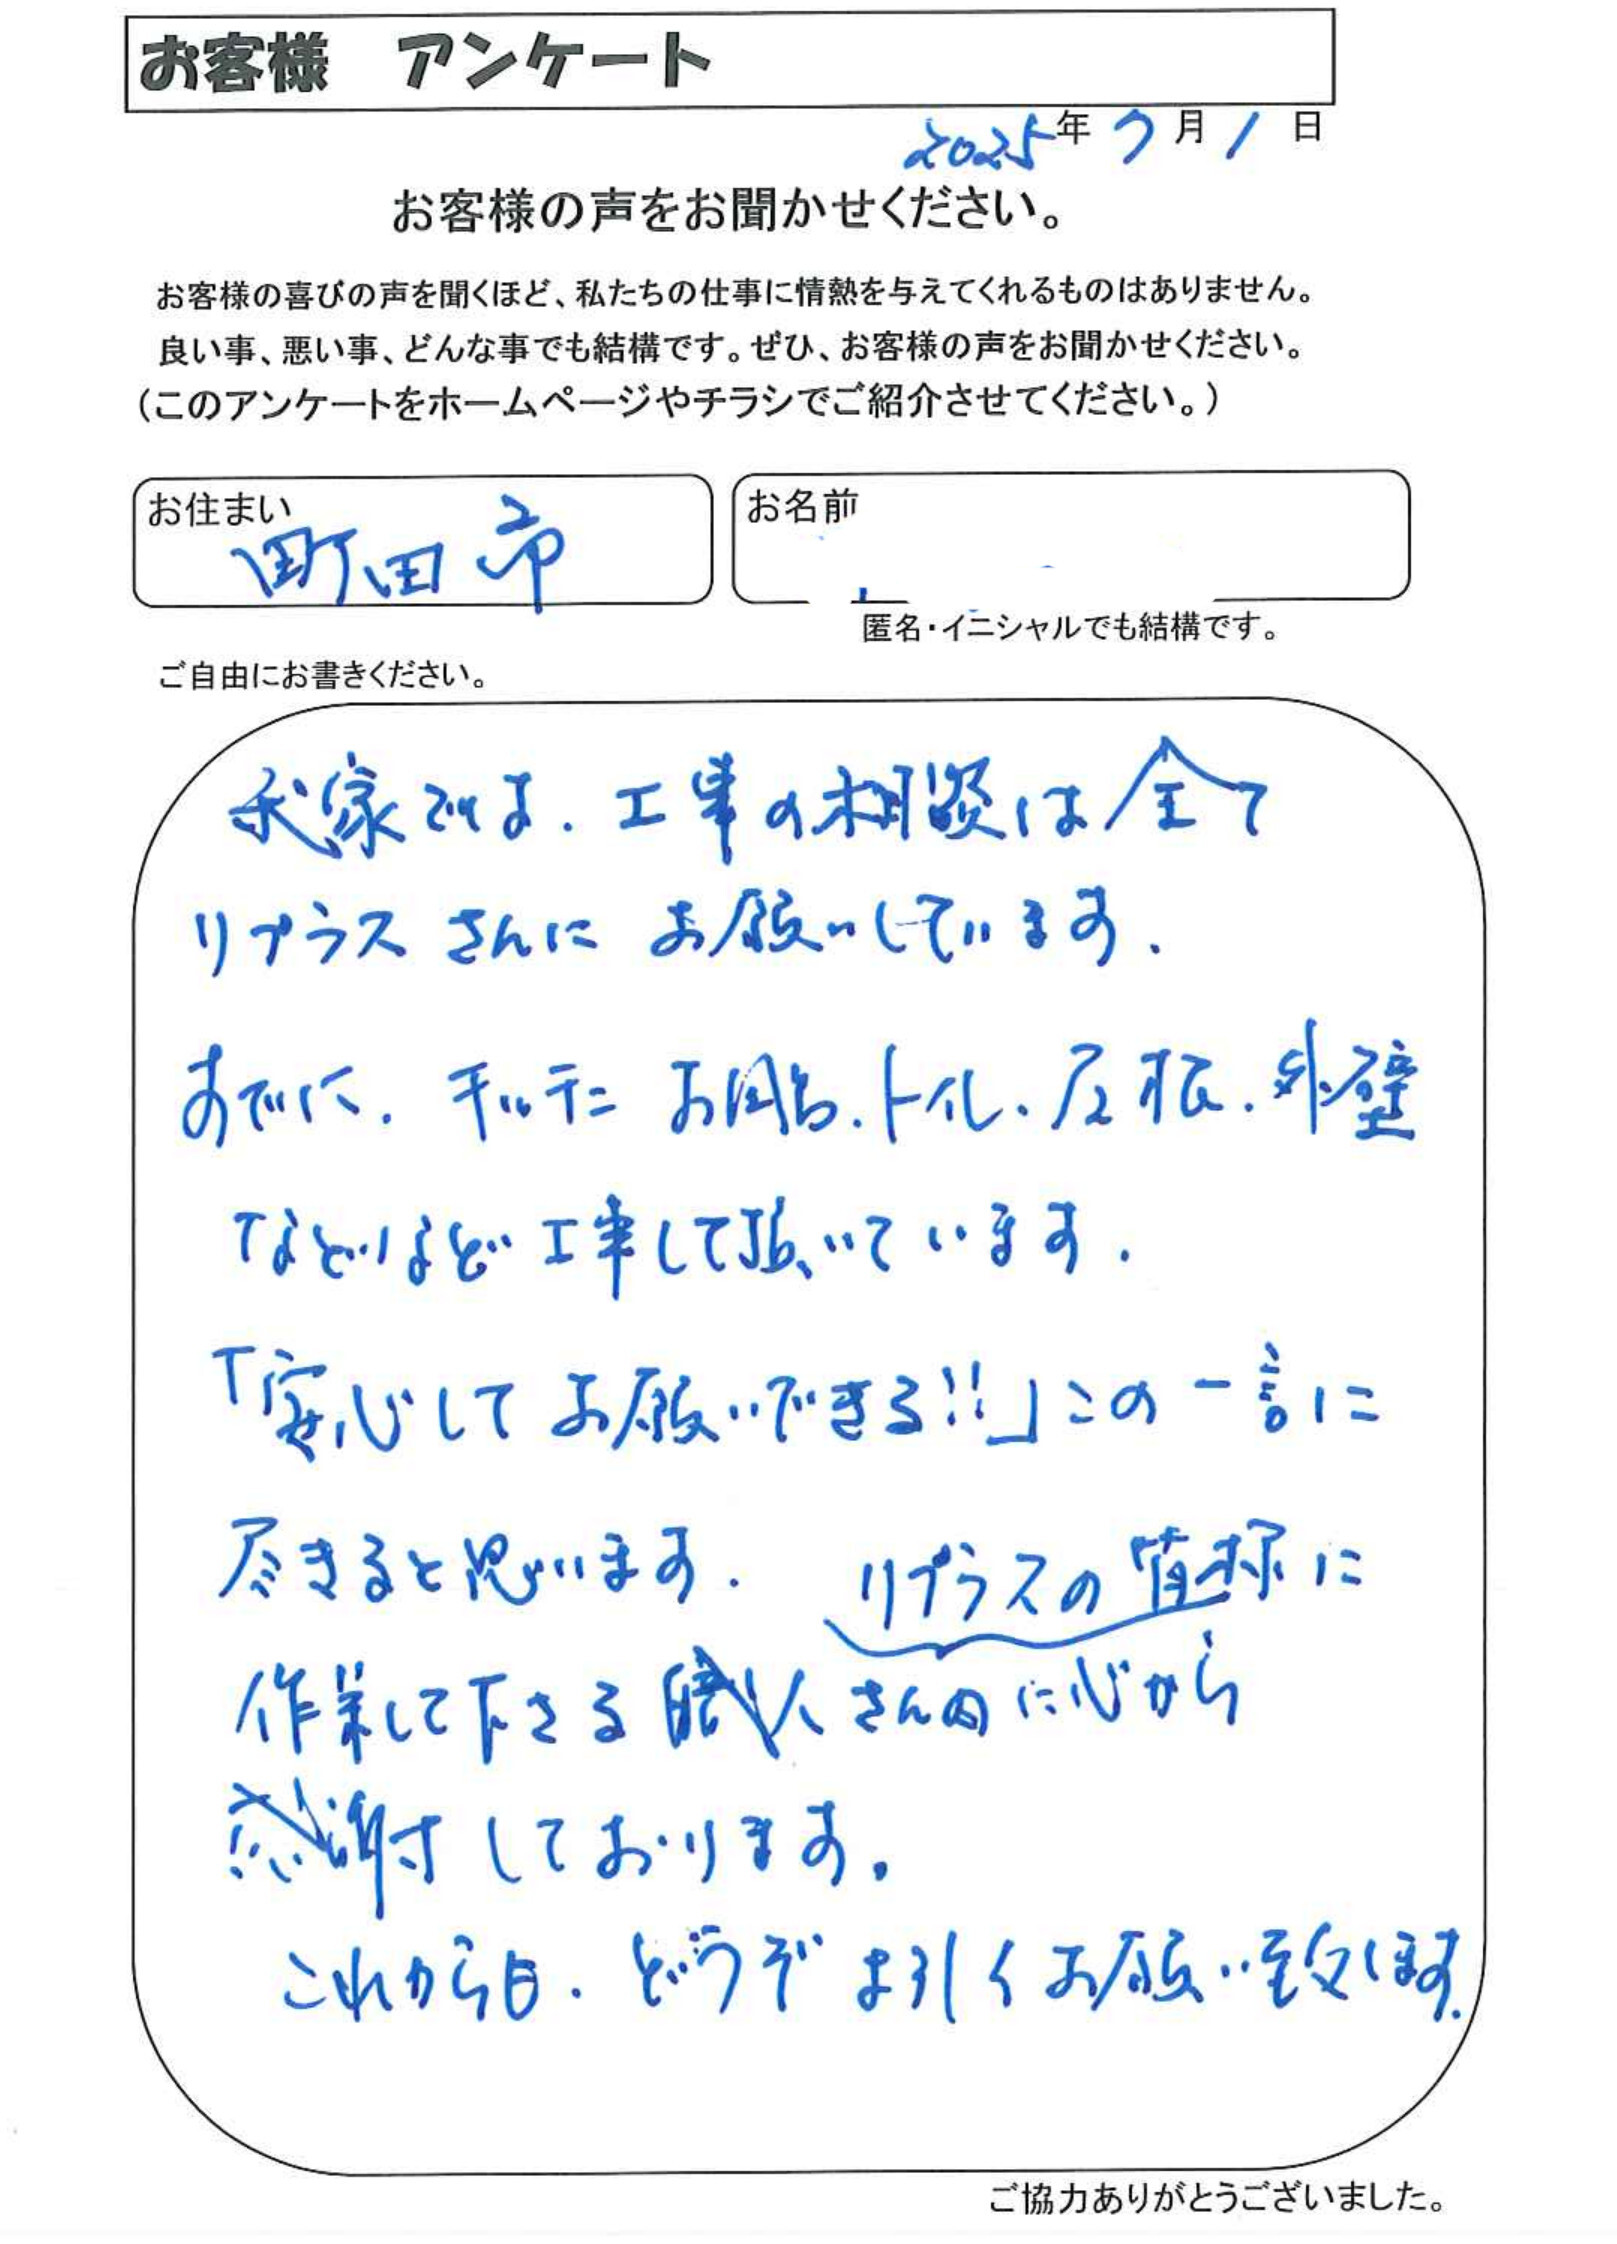 お客様 アンケート
2025年7月1日
お客様の声をお聞かせください。
お客様の喜びの声を聞くほど、私たちの仕事に情熱を与えてくれるものはありません。
良い事、悪い事、どんな事でも結構です。ぜひ、お客様の声をお聞かせください。
（このアンケートをホームページやチラシでご紹介させてください。）
お住まい
町田市
お名前
匿名・イニシャルでも結構です。
ご自由にお書きください。
我家では、工事の相談は全て
リプラスさんにお願いしています。
すでに、キッチン お風呂、トイレ、屋根、外壁
などなど工事して頂いています。
「安心してお願いできる!!」この一言に
尽きると思います。 リプラスの皆様に
作業して下さる職人さん方に心から
感謝しております。
これからも、どうぞ末引くお願い致します。
ご協力ありがとうございました。